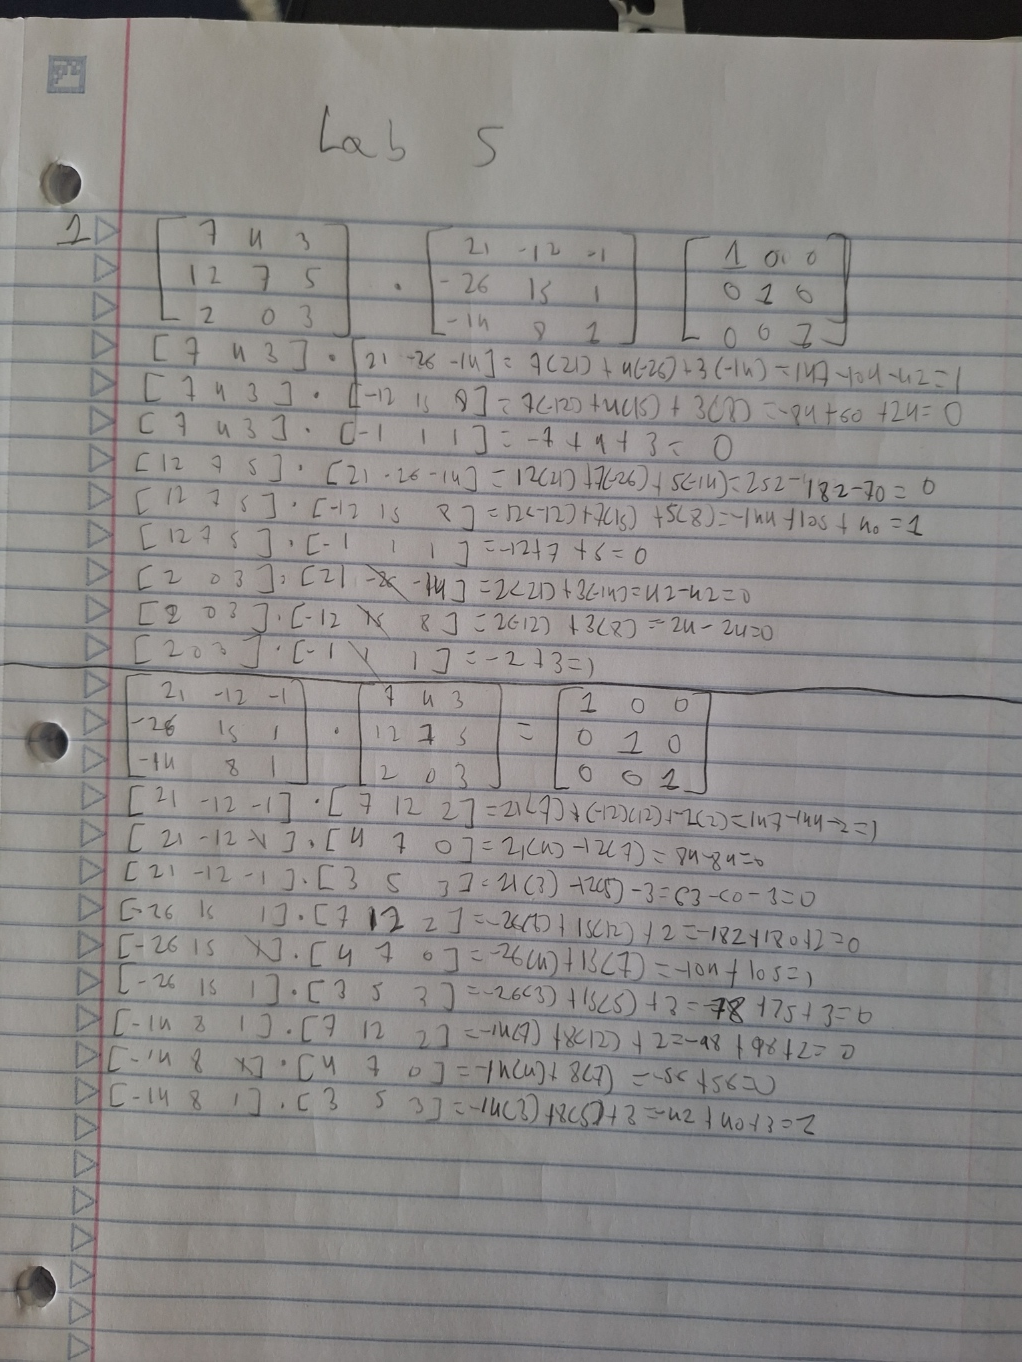 Lab 5
1
7 4 3
12 7 5
2 0 3
·
21 -12 -1
-26 15 1
-14 8 1
1 0 0
0 1 0
0 0 1
[7 4 3] · [21 -26 -14] = 7(21) + 4(-26) + 3(-14) = 147-104-42 = 1
[7 4 3] · [-12 15 8] = 7(-12) + 4(15) + 3(8) = -84+60+24 = 0
[7 4 3] · [-1 1 1] = -7 + 4 + 3 = 0
[12 7 5] · [21 -26 -14] = 12(21) + 7(-26) + 5(-14) = 252-182-70 = 0
[12 7 5] · [-12 15 8] = 12(-12) + 7(15) + 5(8) = -144 + 105 + 40 = 1
[12 7 5] · [-1 1 1] = -12+7 +5 = 0
[2 0 3] · [21 -26 -14] = 2(21) + 3(-14) = 42-42 = 0
[2 0 3] · [-12 15 8] = 2(-12) + 3(8) = -24 + 24 = 0
[2 0 3] · [-1 1 1] = -2 + 3 = 1
21 -12 -1
-26 15 1
-14 8 1
·
7 4 3
12 7 5
2 0 3
=
1 0 0
0 1 0
0 0 1
[21 -12 -1] · [7 12 2] = 21(7) + (-12)(12) + -1(2) = 147-144-2 = 1
[21 -12 -1] · [4 7 0] = 21(4) -12(7) = 84-84 = 0
[21 -12 -1] · [3 5 3] = 21(3) -12(5) -3 = 63-60-3 = 0
[-26 15 1] · [7 12 2] = -26(7) + 15(12) + 2 = -182+180+2 = 0
[-26 15 1] · [4 7 0] = -26(4) + 15(7) = -104 + 105 = 1
[-26 15 1] · [3 5 3] = -26(3) + 15(5) + 3 = -78 +75 +3 = 0
[-14 8 1] · [7 12 2] = -14(7) + 8(12) + 2 = -98 + 96 +2 = 0
[-14 8 1] · [4 7 0] = -14(4) + 8(7) = -56 + 56 = 0
[-14 8 1] · [3 5 3] = -14(3) + 8(5) + 3 = -42 + 40 +3 = 1